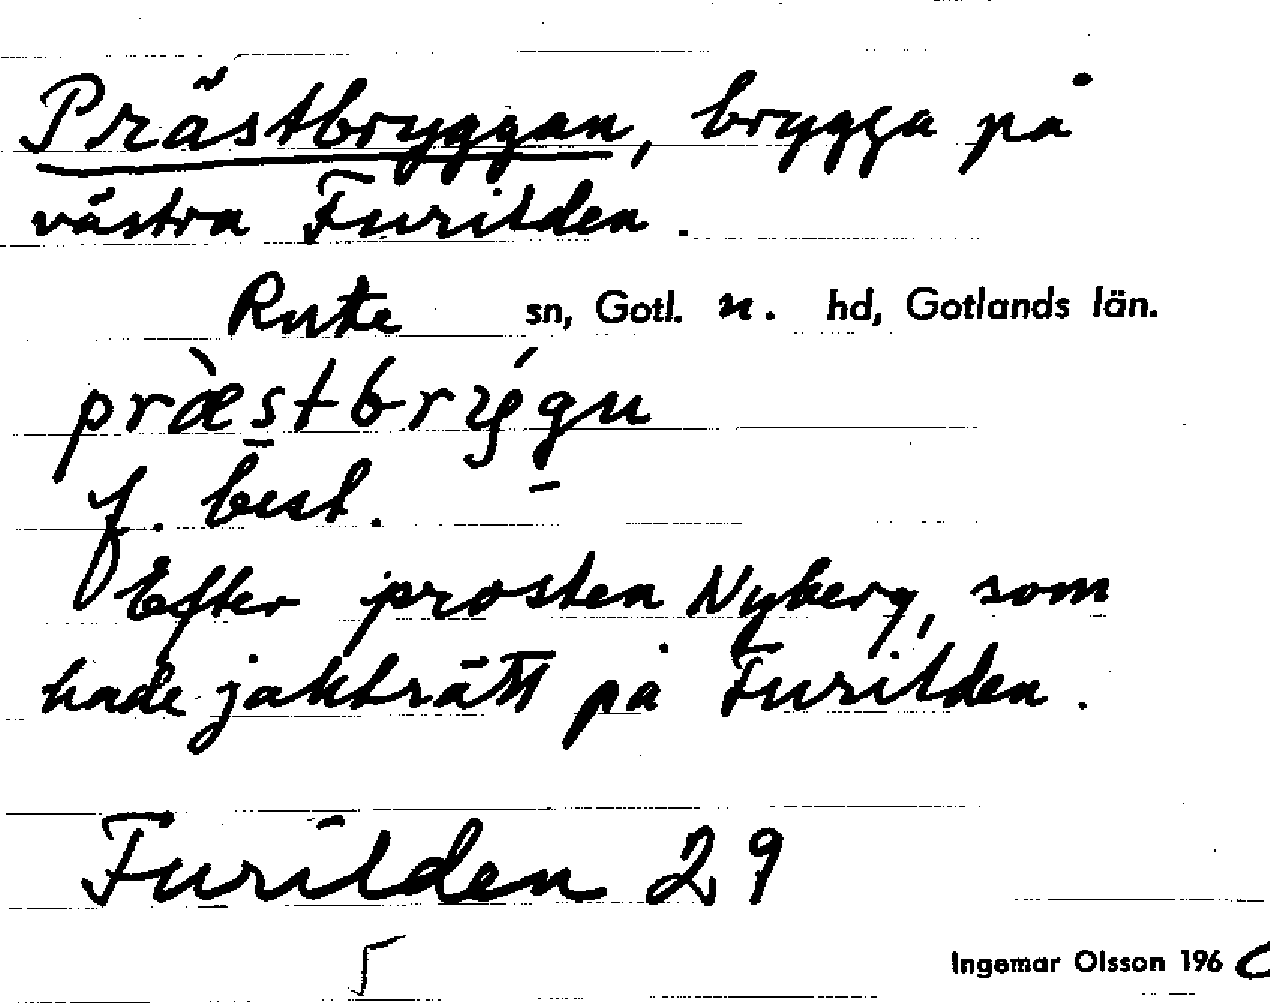 Prästbryggan, brygga på
västra Furilden.
Rute sn, Gotl. n. hd, Gotlands län.
præ̀stbrýgu
f. best.
Efter prosten Nyberg, som
hade jakträtt på Furilden.
Furilden 29
5
Ingemar Olsson 196